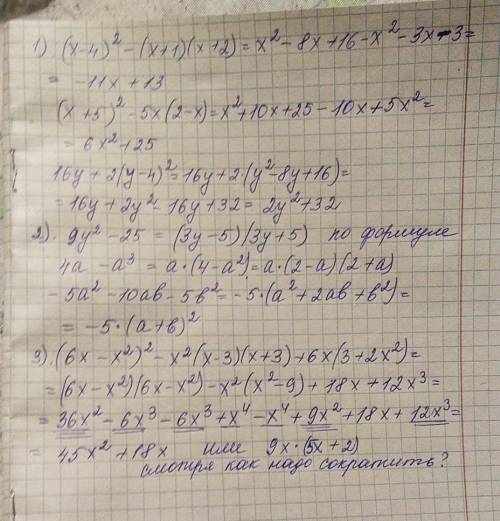 1) (x-4)² - (x+1)(x+2) = x² - 8x + 16 - x² - 3x - 3 =
= -11x + 13
(x+5)² - 5x(2-x) = x² + 10x + 25 - 10x + 5x² =
= 6x² + 25
16y + 2(y-4)² = 16y + 2·(y² - 8y + 16) =
= 16y + 2y² - 16y + 32 = 2y² + 32
2). 9y² - 25 = (3y-5)(3y+5) по формуле
4a - a³ = a·(4-a²) = a·(2-a)(2+a)
-5a² - 10ab - 5b² = -5·(a² + 2ab + b²) =
= -5·(a+b)²
3). (6x - x²)² - x²(x-3)(x+3) + 6x(3+2x²) =
= (6x - x²)(6x - x²) - x²(x² - 9) + 18x + 12x³ =
= 36x² - 6x³ - 6x³ + x⁴ - x⁴ + 9x² + 18x + 12x³ =
= 45x² + 18x или 9x·(5x+2)
смотря как надо сократить?